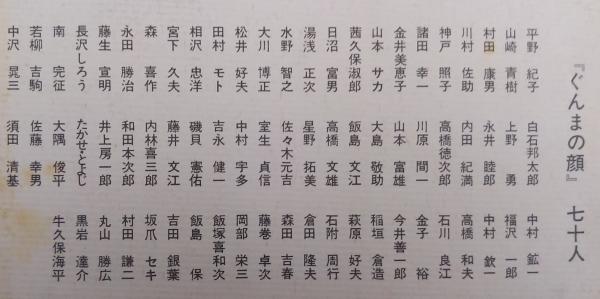 『ぐんまの顔』 七十人
平野 紀子 白石邦太郎 中村 鉱一
山崎 青樹 上野 勇 福沢 一郎
村田 康男 永井 睦郎 中村 欽一
川村 佐助 内田 紀満 高橋 和夫
神戸 照子 高橋徳次郎 石川 良江
諸田 幸一 川原 間一 金子 裕
金井美恵子 山本 富雄 今井善一郎
山本 サカ 大島 敬助 稲垣 倉造
茜久保淑郎 飯島 文江 萩原 好夫
日沼 富男 高橋 文雄 石附 周行
湯浅 正次 星野 拓美 倉田 隆夫
水野 智之 佐々木元吉 森田 吉春
大川 博正 室生 貞信 藤巻 卓次
松井 好夫 中村 宇多 岡部 栄三
田村 モト 吉永 健一 飯塚喜和次
相沢 忠洋 磯貝 憲佑 飯島 保
宮下 久夫 藤井 文江 吉田 銀葉
森 喜作 内林喜三郎 坂爪 セキ
永田 勝治 和田本次郎 村田 謙二
藤生 宣明 井上房一郎 丸山 勝広
長沢しろう たかせとよじ 黒岩 達介
南 完征 大隅 俊平 牛久保海平
若柳 吉駒 佐藤 幸男
中沢 晃三 須田 清基